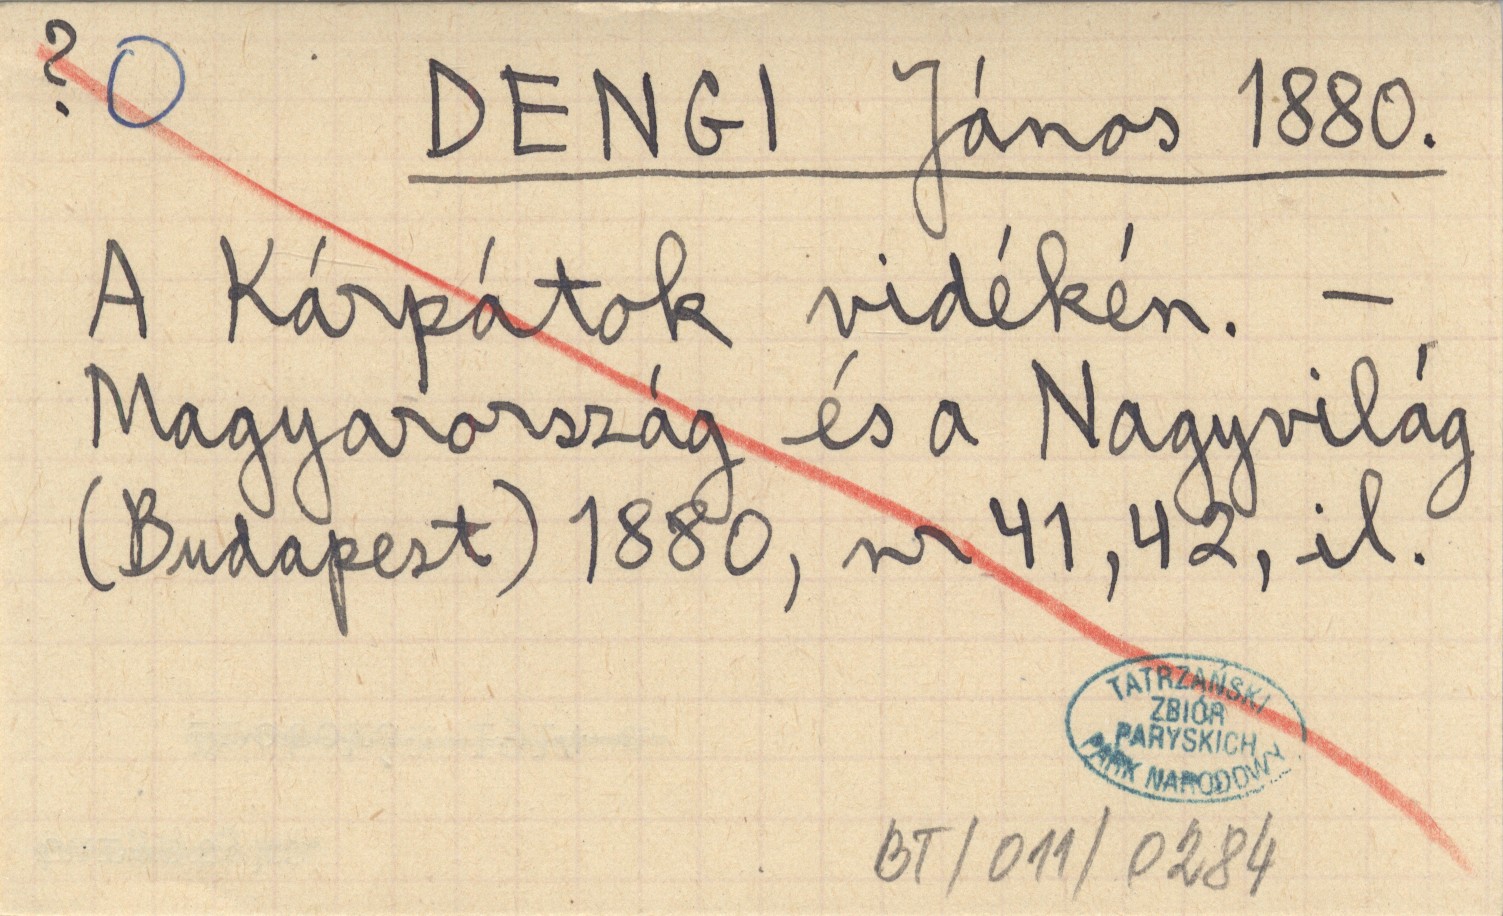 ? O DENGI János 1880.
A Kárpátok vidékén. —
Magyarország és a Nagyvilág
(Budapest) 1880, nr 41, 42, il.
TATRZAŃSKI
ZBIÓR
PARYSKICH
PARK NARODOWY
BT/011/0284